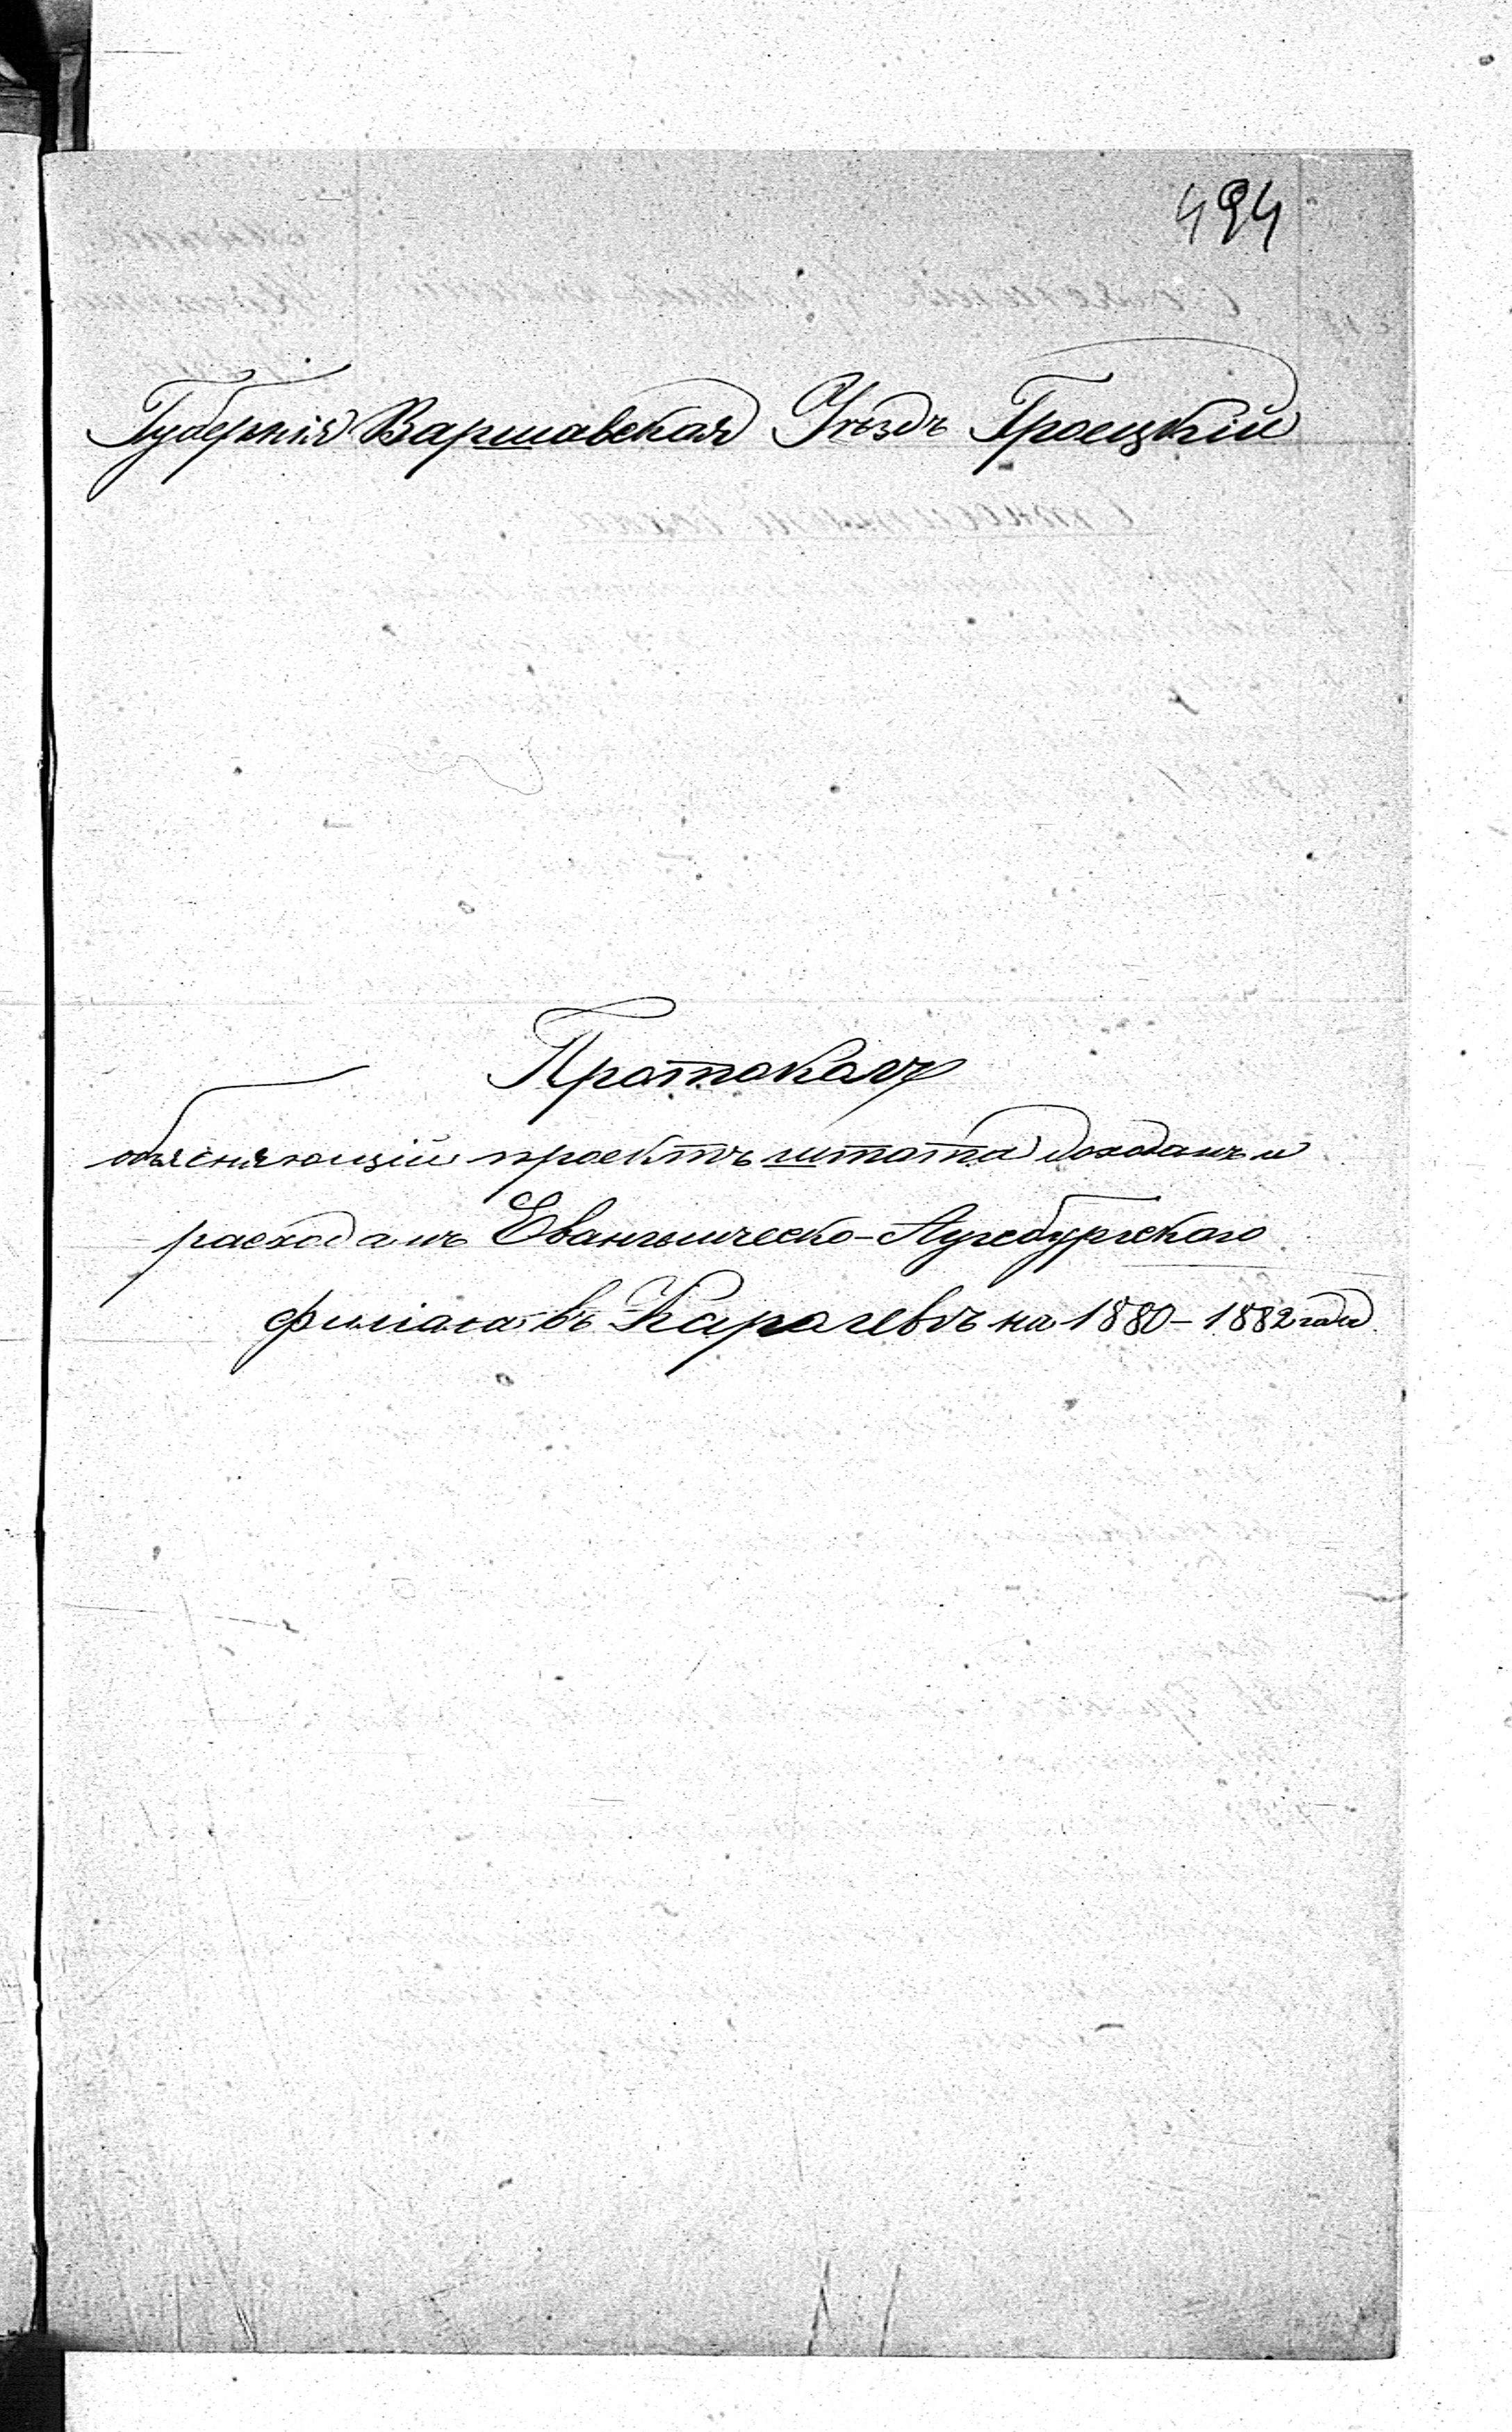 494
Губернія Варшавская Уѣздъ Гроецкій
Протоколъ
объясняющій проектъ штата доходамъ и
расходамъ Евангелическо-Аугсбургскаго
филіала въ Каролевѣ на 1880-1882 годы